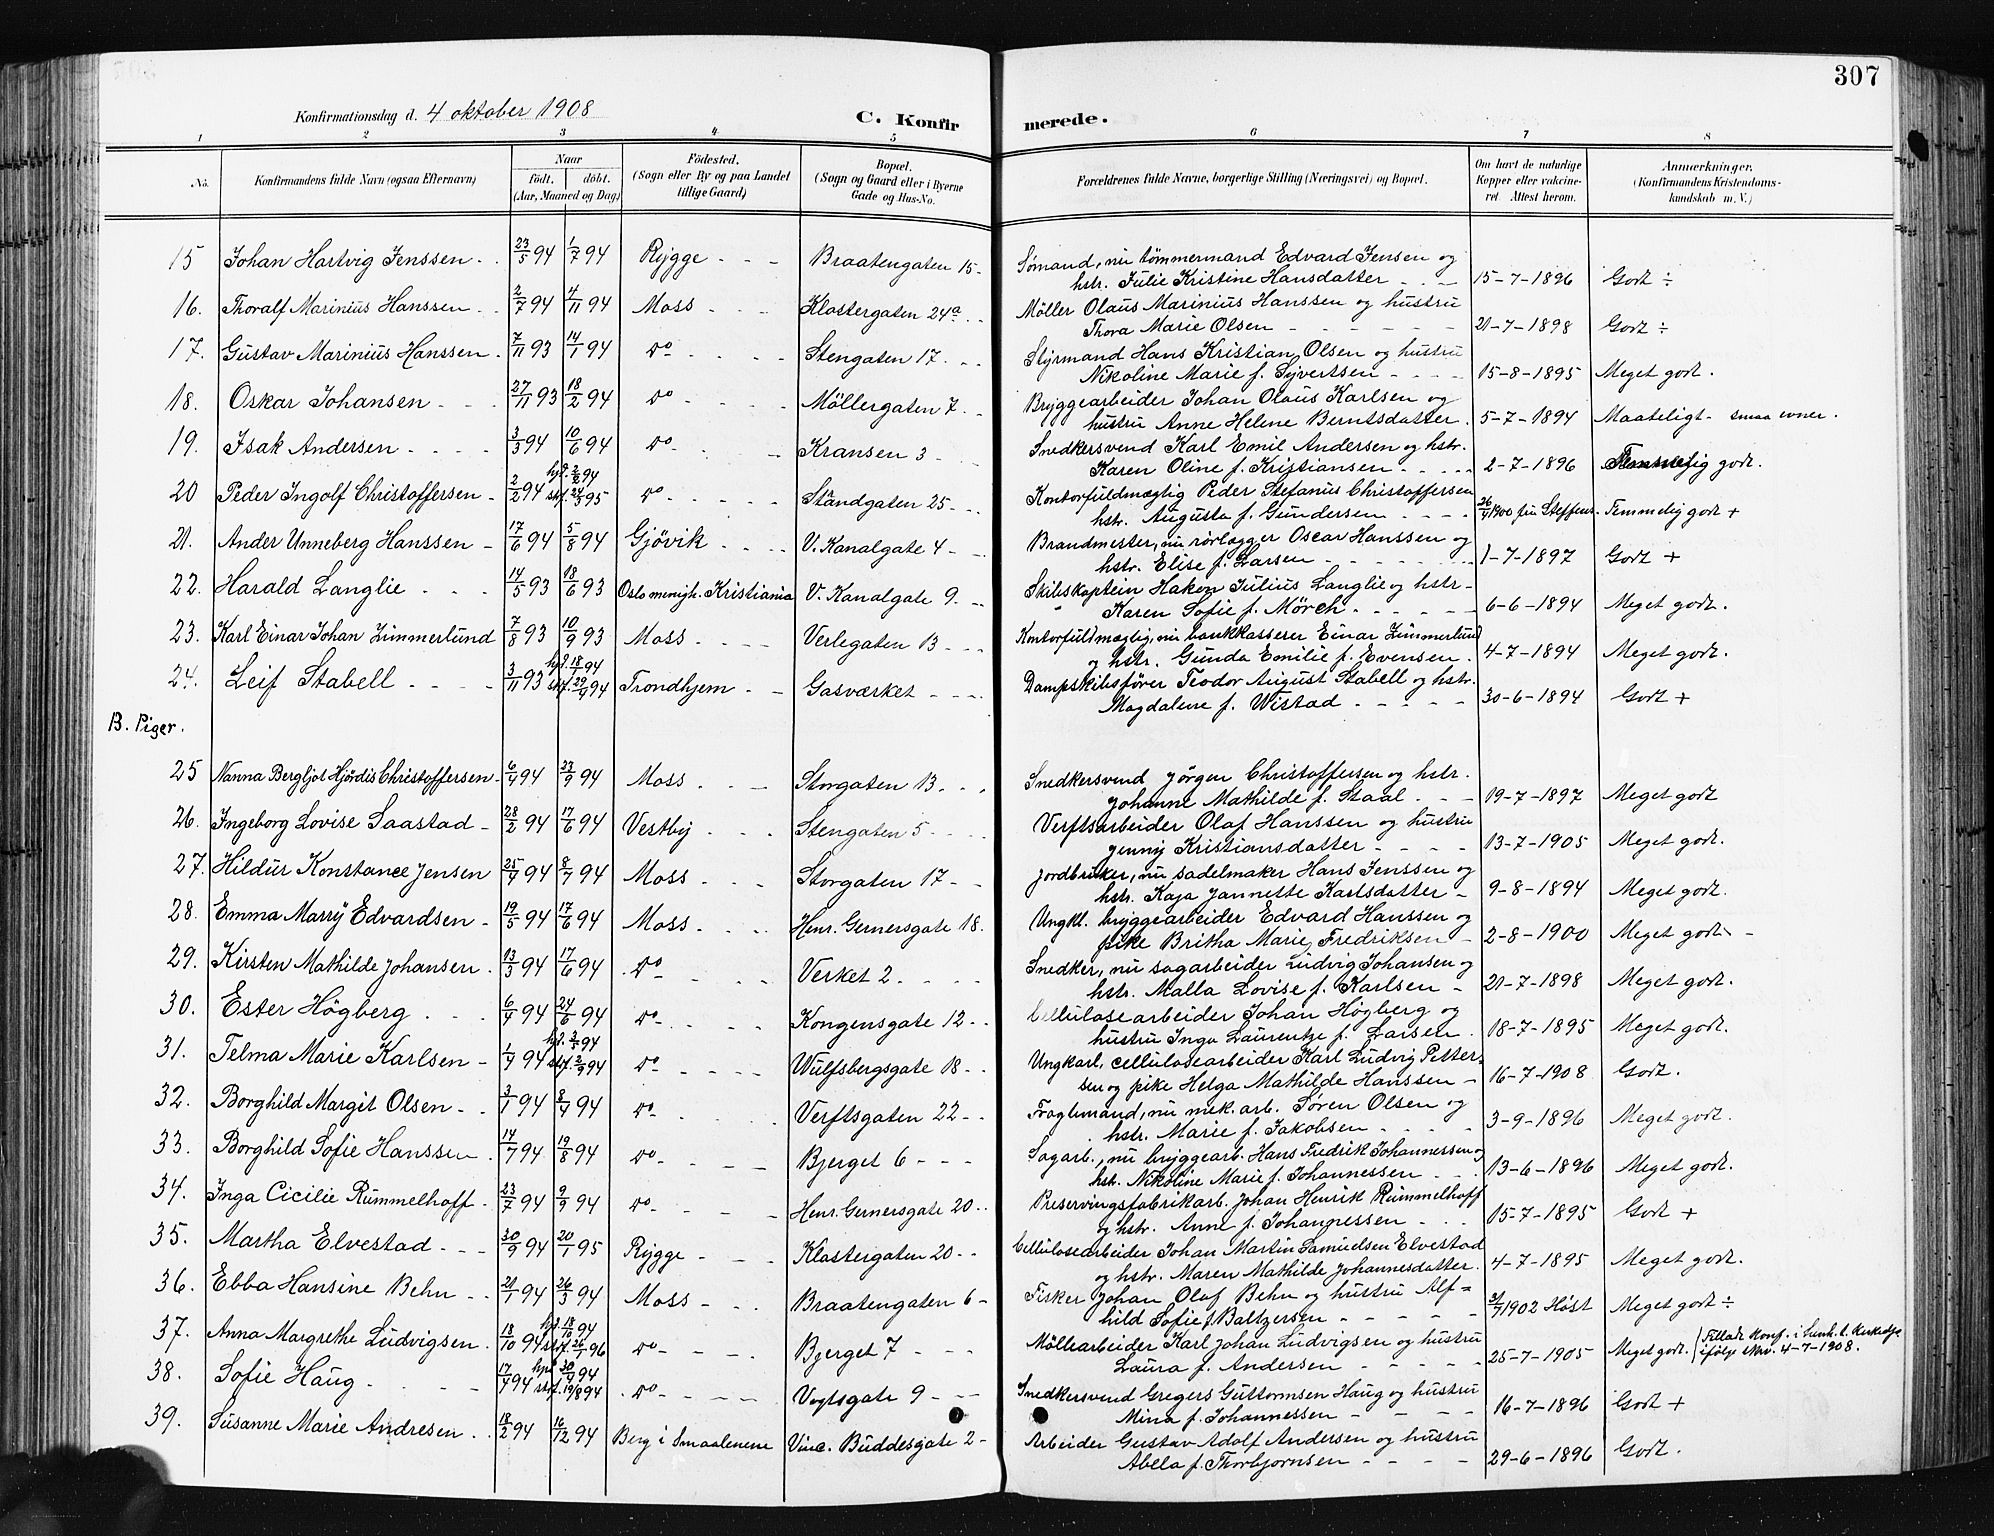 307
Konfirmationsdag d. 4 oktober 1908
C. Konfirmerede.
1 2 3 4 5 6 7 8
No.
Konfirmandens fulde Navn (ogsaa Efternavn)
Naar
födt. döbt.
(Aar, Maaned og Dag)
Födested.
(Sogn eller By og paa Landet
tillige Gaard)
Bopæl.
(Sogn og Gaard eller i Byerne
Gade og Hus-No.
Forældrenes fulde Navne, borgerlige Stilling (Næringsvei) og Bopæl.
Om havt de naturlige
Kopper eller vakcine-
ret. Attest herom.
Anmærkninger.
(Konfirmandens Kristendoms-
kundskab m. V.)
15 Johan Hartvig Jenssen 23/5 94 1/7 94 Rygge Braatengaten 15 Sømand, nu tømmermand Edvard Jensen og
hstr. Julie Kristine Hansdatter 15-7-1896 Godt ÷
16. Thoralf Marinius Hanssen 2/7 94 4/11 94 Moss Klostergaten 24a Møller Olaus Marinius Hanssen og hustru
Thora Marie Olsen 21-7-1898 Godt ÷
17. Gustav Marinius Hanssen 7/11 93 14/1 94 Do Stengaten 17 Styrmand Hans Kristian Olsen og hustru
Nikoline Marie f. Syvertsen 15-8-1895 Meget godt.
18. Oskar Johansen 27/11 93 18/2 94 Do Möllergaten 7 Bryggearbeider Johan Olaus Karlsen og
hustru Anne Helene Berntsdatter 5-7-1894 Maateligt - smaa evner.
19. Isak Andersen 3/3 94 10/6 94 Do Kransen 3 Snedkersvend Karl Emil Andersen og hstr.
Karen Oline f. Kristiansen 2-7-1896 godt.
20 Peder Ingolf Christoffersen 2/2 94 hjd. 2/2 94 stf. 24/3 95 Do Standgaten 25 Kontorfuldmægtig Peder Stefanus Christoffersen
hstr. Augusta f. Gundersen 26/4 1900 Steffens. Temmelig godt +
21. Ander Unneberg Hanssen 17/6 94 5/8 94 Gjövik V. Kanalgate 4 Brandmester, nu rørlægger Oscar Hanssen og
hstr. Elise f. Larsen 1-7-1897 Godt +
22. Harald Langlie 14/5 93 18/6 93 Oslo menigh. Kristiania V. Kanalgate 9 Skibskaptein Hakon Julius Langlie og hstr
Karen Sofie f. Mörch 6-6-1894 Meget godt.
23. Karl Einar Johan Zimmerlund 7/8 93 10/9 93 Moss Verlegaten 13 Kontorfuldmægtig, nu bankkasserer Einar Zimmerlund
og hstr. Gunda Emilie f. Evensen 4-7-1894 Meget godt.
24. Leif Stabell 3/11 93 hjd. 18/1 94 stf. 29/4 94 Trondhjem Gasværket Dampskibsfører Teodor August Stabell og hstr.
Magdalene f. Wistad 30-6-1894 Godt +
B. Piger.
25 Nanna Bergljot Hjördis Christoffersen 6/4 94 23/9 94 Moss Storgaten 13 Snedkersvend Jörgen Christoffersen og hstr.
Johanne Mathilde f. Staal 19-7-1897 Meget godt
26. Ingeborg Lovise Saastad 28/2 94 17/6 94 Vestby Stengaten 5 Verftsarbeider Olaf Hanssen og hustru
Jenny Kristiansdatter 13-7-1905 Meget godt.
27. Hildur Konstance Jensen 25/4 94 8/7 94 Moss Storgaten 17 Jordbruker, nu sadelmaker Hans Jenssen og
hstr. Kaja Jannette Karlsdatter 9-8-1894 Meget godt.
28. Emma Marry Edvardsen 19/5 94 17/6 94 Moss Henr. Gernersgate 18. Ungkl. bryggearbeider Edvard Hanssen og
pike Britha Marie Fredriksen 2-8-1900 Meget godt
29. Kirsten Mathilde Johansen 13/3 94 17/6 94 Do Verket 2 Snedker, nu sagarbeider Ludvig Johansen og
hstr. Malla Lovise f. Karlsen 21-7-1898 Meget godt.
30. Ester Högberg 6/4 94 24/6 94 Do Kongensgate 12 Cellulosearbeider Johan Högberg og
hustru Inga Laurentze f. Larsen 18-7-1895 Meget godt.
31. Telma Marie Karlsen 1/4 94 stf. 2/9 94 Do Wulfsbergsgate 18 Ungkarl, cellulosearbeider Karl Ludvig Petter-
sen og pike Helga Mathilde Hanssen 16-7-1908 Godt.
32. Borghild Margit Olsen 3/1 94 8/4 94 Do Verftsgaten 22 Fragtemand, nu mek. arb. Søren Olsen og
hstr. Marie f. Jakobsen 3-9-1896 Meget godt.
33. Borghild Sofie Hanssen 14/7 94 19/8 94 Do Bjerget 6 Sagarb., nu bryggearb. Hans Fredrik Johannessen og
hst. Nikoline Marie f. Johannessen 13-6-1896 Meget godt.
34. Inga Cicilie Rummelhoff 23/7 94 9/9 94 Do Henr. Gernersgate 20 Preservingsfabrikarb. Johan Henrik Rummelhoff
og hstr. Anne f. Johannessen 15-7-1895 Godt +
35. Martha Elvestad 30/9 94 20/1 95 Rygge Klostergaten 20 Cellulosearbeider Johan Martin Samuelsen Elvestad
og hstr. Maren Mathilde Johannesdatter 4-7-1895 Meget godt.
36. Ebba Hansine Behn 21/1 94 26/3 94 Moss Braatengaten 6 Fisker Johan Olaf Behn og hustru Alf=
hild Sofie f. Baltzersen 1902 Høst Meget godt ÷
37. Anna Margrethe Ludvigsen 18/10 94 hjd. 18/10 94 stf. 26/1 96 Do Bjerget 7 Møllearbeider Karl Johan Ludvigsen og hustru
Laura f. Andersen 25-7-1905 Meget godt. (Tilladt konf. i henh. t.
ifølge skr. 4-7-1908.
38. Sofie Haug 17/4 94 hjd. 30/4 94 stf. 19/8 94 Do Vogtsgate 9 Snedkersvend Gregers Guttormsen Haug og hustru
Mina f. Johannessen 16-7-1896 Godt +
39. Susanne Marie Andresen 18/2 94 16/12 94 Berg i Smaalenene Vinc. Buddesgate 2 Arbeider Gustav Adolf Andersen og hustru
Abela f. Thorbjornsen 29-6-1896 Godt.